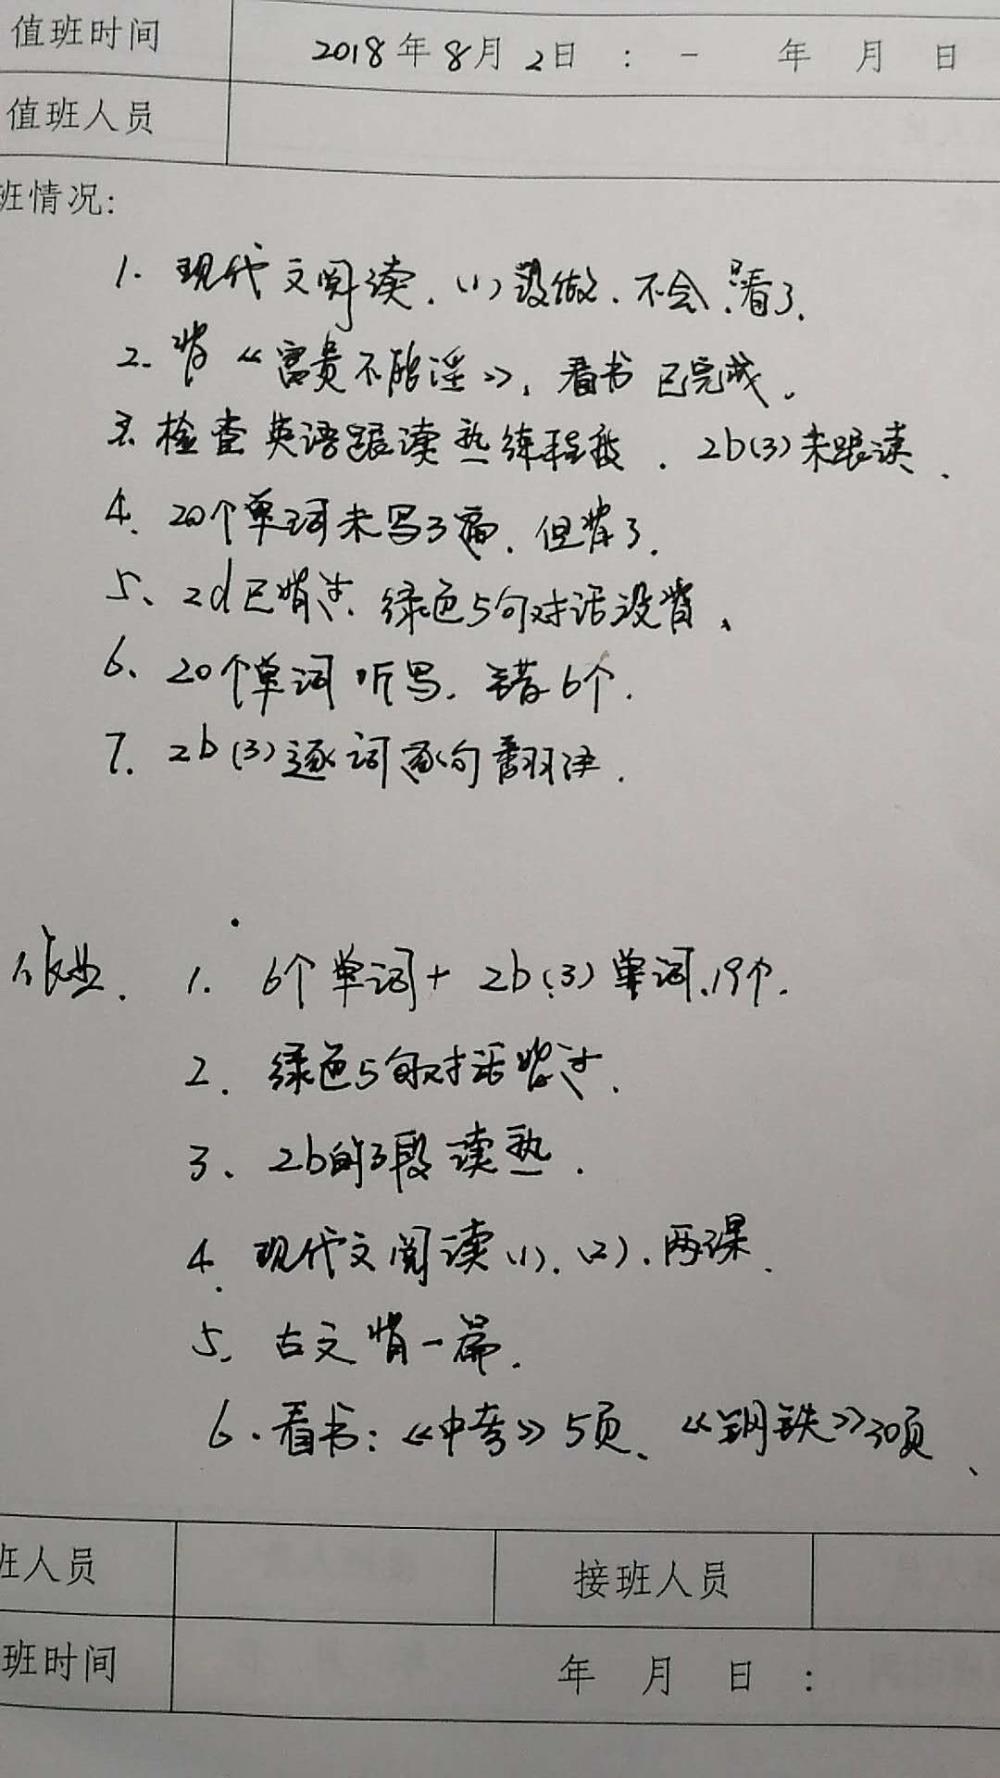 值班时间 2018年8月2日 : - 年 月 日
值班人员
班情况:
1. 现代文阅读.(1)没做.不会.只看了.
2. 背《富贵不能淫》,看书已完成。
3. 检查英语跟读熟练程度.2b(3)未跟读、
4. 20个单词未写3遍.但背了.
5、2d已背过、绿色5句对话没背、
6、20个单词听写.错6个.
7. 2b(3)逐词逐句翻译.
作业、1. 6个单词+2b(3)单词.19个.
2. 绿色5句对话背过.
3、2b的3段读熟.
4. 现代文阅读(1).(2).两课.
5. 古文背一篇.
6.看书:《中考》5页、《钢铁》30页、
班人员 接班人员
班时间 年 月 日 :